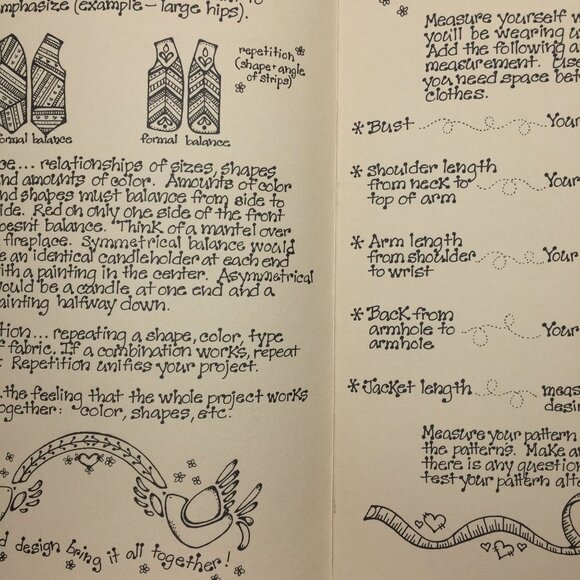 emphasize (example - large hips).
repetition
(shape + angle
of strips)
formal balance
formal balance
relationships of sizes, shapes
and amounts of color. Amounts of color
and shapes must balance from side to
side. Red on only one side of the front
doesnt balance. Think of a mantel over
fireplace. Symmetrical balance would
be an identical candleholder at each end
with a painting in the center. Asymmetrical
would be a candle at one end and a
painting halfway down.
repeating a shape, color, type
of fabric. If a combination works, repeat
Repetition unifies your project.
the feeling that the whole project works
together: color, shapes, etc.
design bring it all together!
Measure yourself
you'll be wearing
Add the following
measurement.
you need space
clothes.
* Bust
* Shoulder length
from neck to
top of arm
Your
* Arm length
from shoulder
to wrist
Your
* Back from
armhole to
armhole
Your
* Jacket length
Measure your pattern
the patterns. Make
there is any question
test your pattern